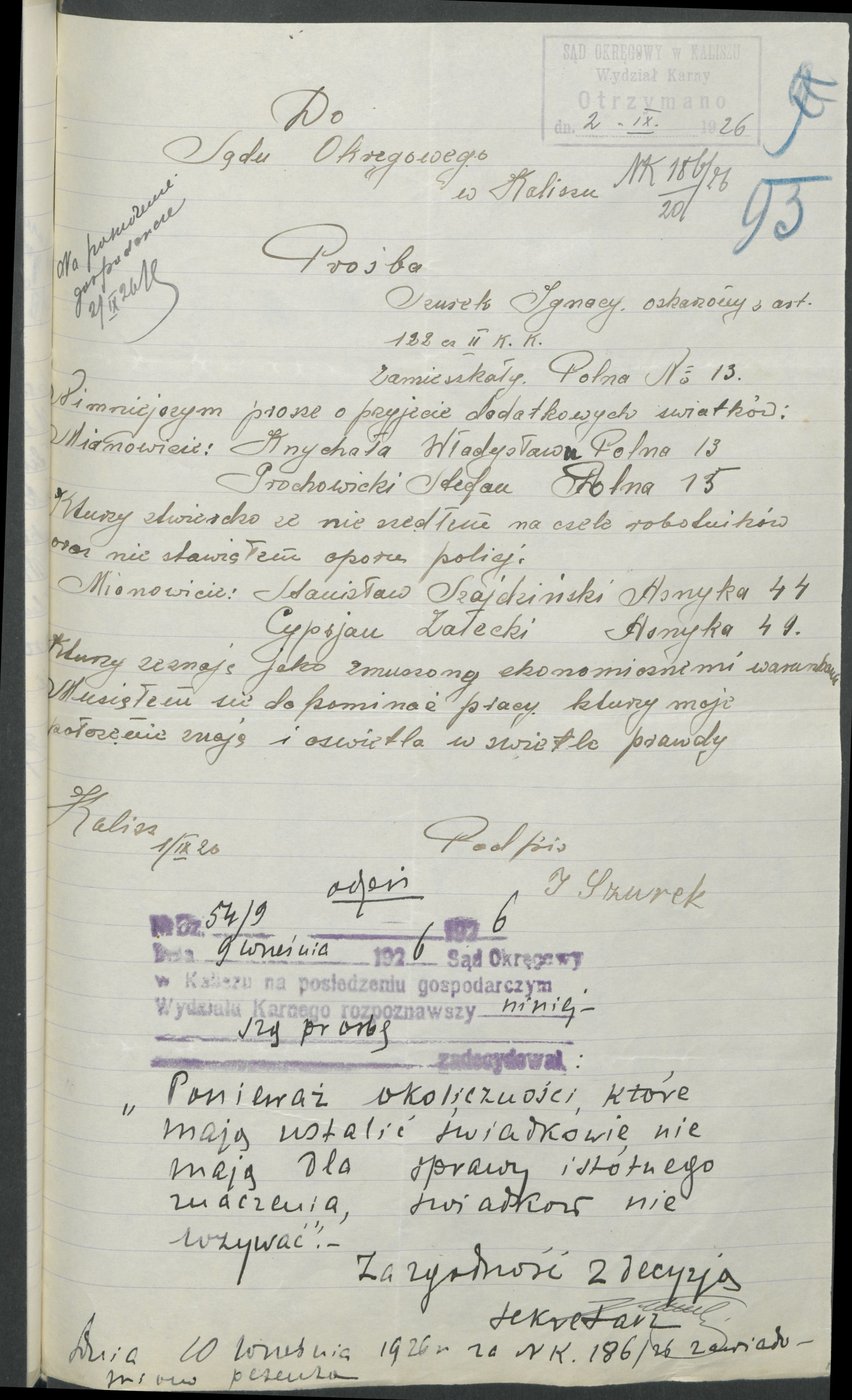 SĄD OKRĘGOWY w KALISZU
Wydział Karny
Otrzymano
dn. 2 - IX. 1926
95
Do
Sądu Okręgowego
w Kaliszu
NK 186/26
20
Na posiedzenie
gospodarcze
2/IX 26
Prośba
Szurek Ignacy. oskarżony z art.
122 cz II K. K.
Zamieszkały. Polna No 13.
Niniejszym prosze o przyjęcie dodatkowych swiatków:
Mianowicie: Knychała Władysław Polna 13
Prochowicki Stefan Polna 15
Kturzy stwierdzo że nie szedłem na czele robotników
oraz nie stawiałem oporu policji:
Mianowicie: Stanisław Szajdziński Asnyka 44
Cyprjan Załecki Asnyka 49.
Kturzy zeznają jako zmuszony ekonomicznemi warunkami
Musiałem sie dopominać pracy. kturzy moje
położenie znają i oswietla w swietle prawdy
Kalisz
1/IX 26
Podpis
I Szurek
odpis
Nr Dz. 54/9 1926
Dnia 9 września 1926 Sąd Okręgowy
w Kaliszu na posiedzeniu gospodarczym
Wydziału Karnego rozpoznawszy niniej-
szą prośbę
zadecydował:
„Ponieważ okoliczności, które
mają ustalić świadkowie, nie
mają dla sprawy istótnego
znaczenia, świadków nie
wzywać”.-
Za zgodność z decyzją
sekretarz
Dnia 10 września 1926 r za NK. 186/26 zawiado-
miono petenta